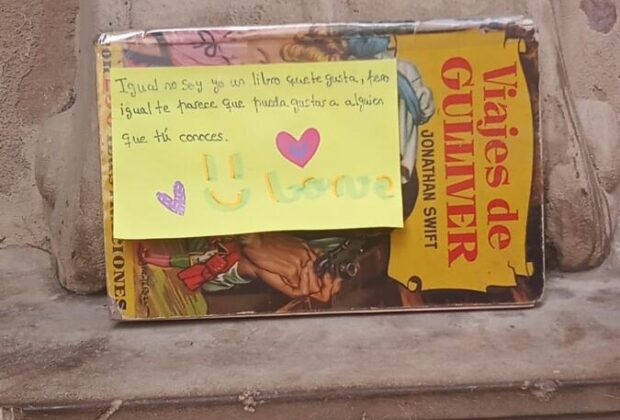 Igual no soy yo un libro que te gusta, pero
igual te parece que pueda gustar a alguien
que tú conoces.
Viajes de
GULLIVER
JONATHAN SWIFT
CIONES